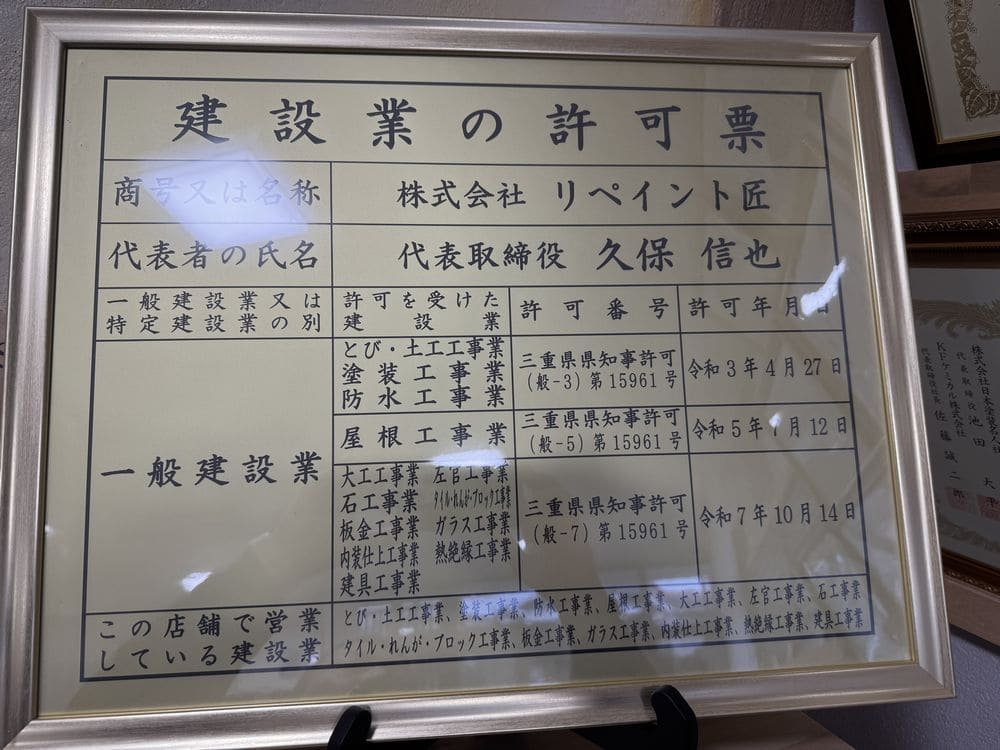 建設業の許可票
商号又は名称
株式会社 リペイント匠
代表者の氏名
代表取締役 久保 信也
一般建設業又は
特定建設業の別
許可を受けた
建設業
許可番号
許可年月日
一般建設業
とび・土工工事業
塗装工事業
防水工事業
三重県県知事許可
(般-3)第15961号
令和3年4月27日
屋根工事業
三重県県知事許可
(般-5)第15961号
令和5年7月12日
大工工事業 左官工事業
石工事業 タイル・れんが・ブロック工事業
板金工事業 ガラス工事業
内装仕上工事業 熱絶縁工事業
建具工事業
三重県県知事許可
(般-7)第15961号
令和7年10月14日
この店舗で営業
している建設業
とび・土工工事業、塗装工事業、防水工事業、屋根工事業、大工工事業、左官工事業、石工事業
タイル・れんが・ブロック工事業、板金工事業、ガラス工事業、内装仕上工事業、熱絶縁工事業、建具工事業
代表取締役 池田 大平
KFケミカル株式会社
代表取締役社長 佐藤誠二郎